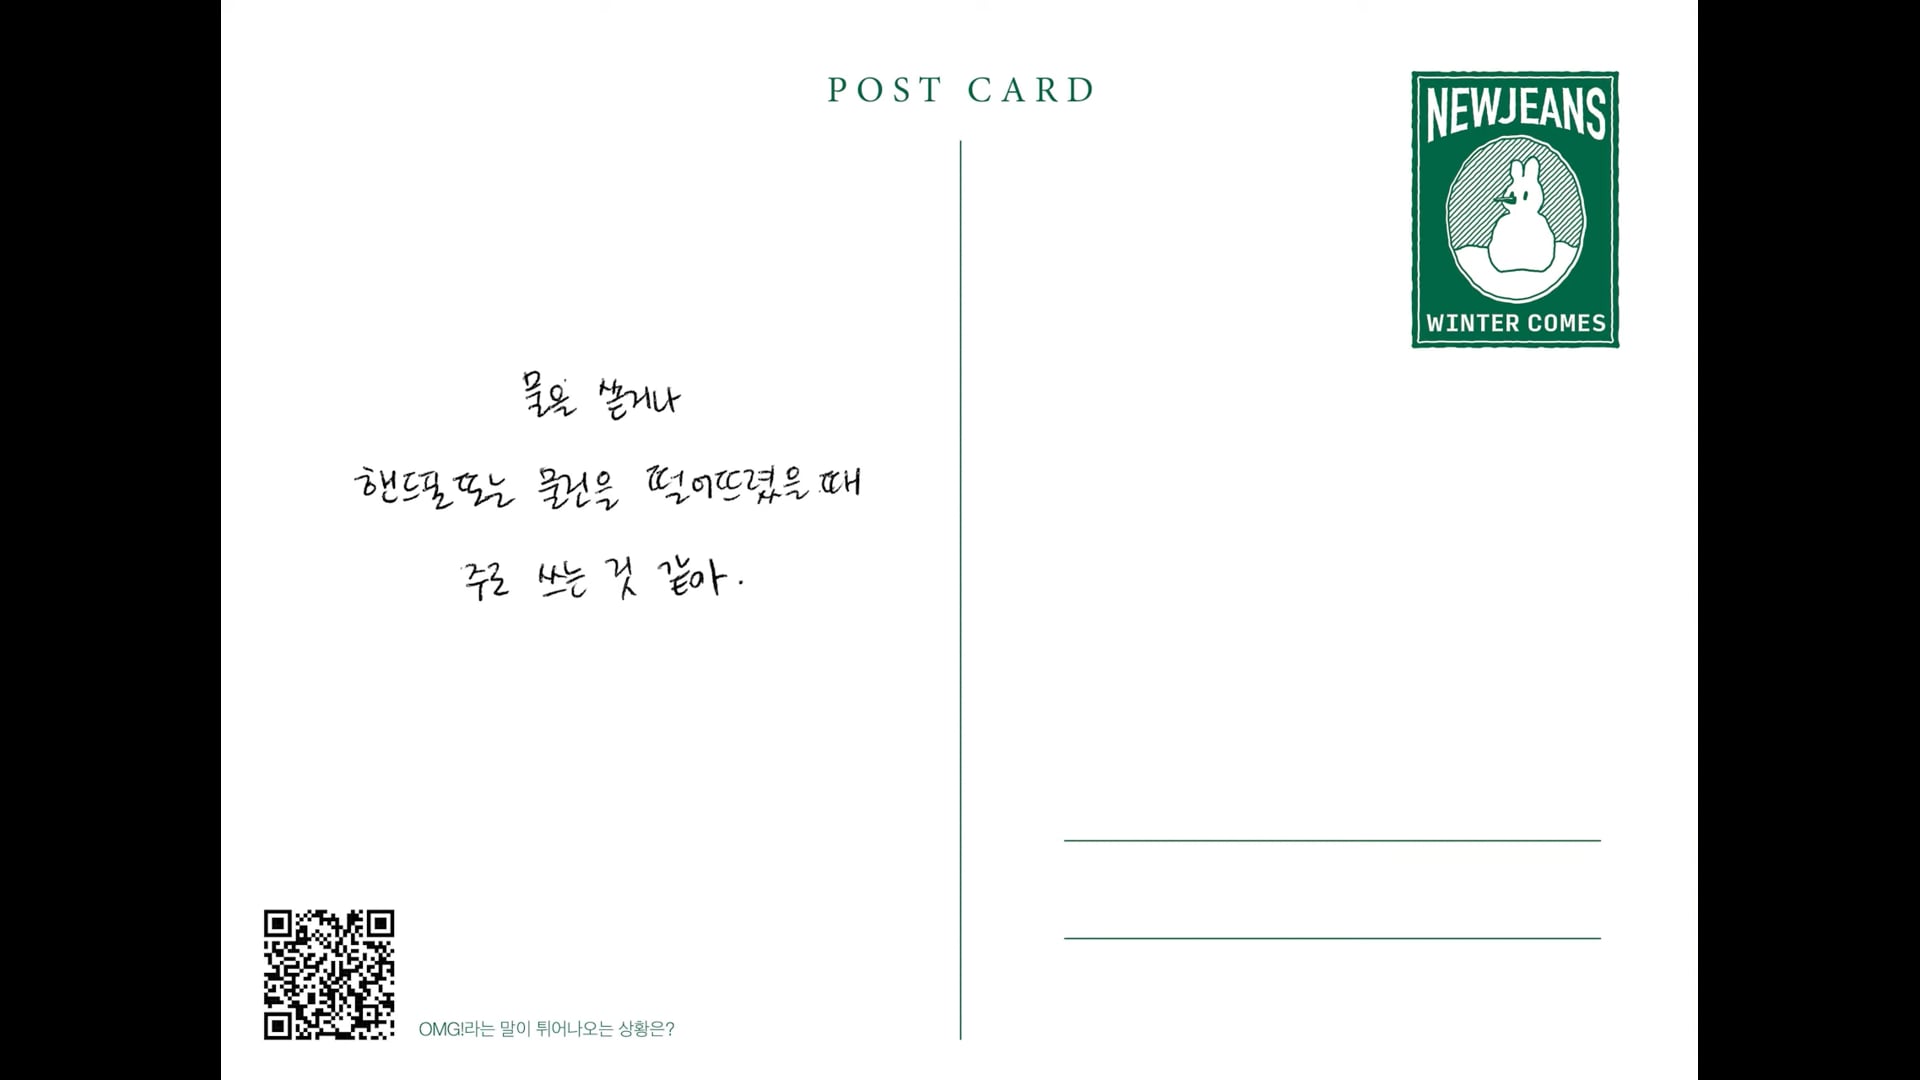 POST CARD
NEWJEANS
WINTER COMES
물을 쏟거나
핸드폰 또는 물건을 떨어뜨렸을 때
주로 쓰는 것 같아.
OMG!라는 말이 튀어나오는 상황은?